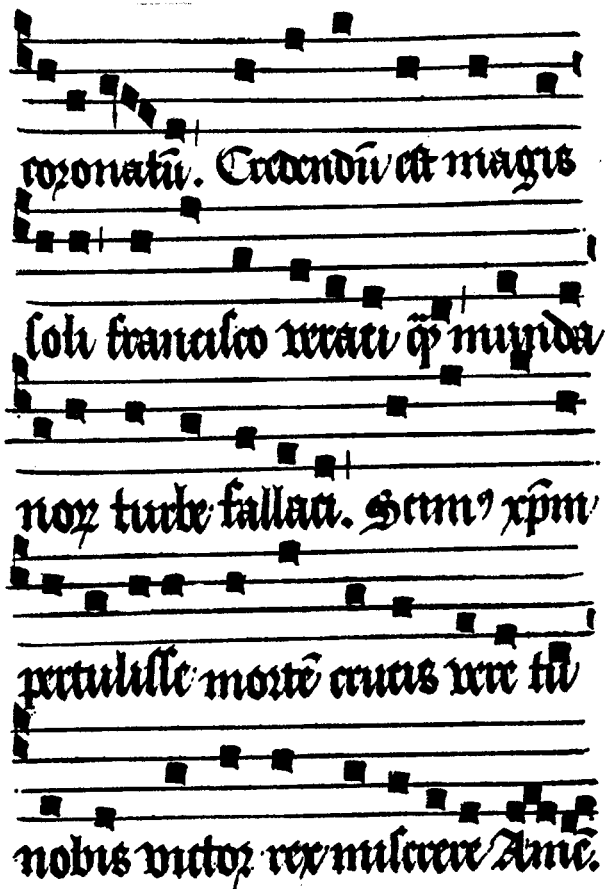 coronatū. Credendū est magis
soli francisco veraci q̄ꝫ munda
noꝝ turbe fallaci. Scimꝰ xp̄m
pertulisse mortē crucis vere tu
nobis victor rex miserere Amē.